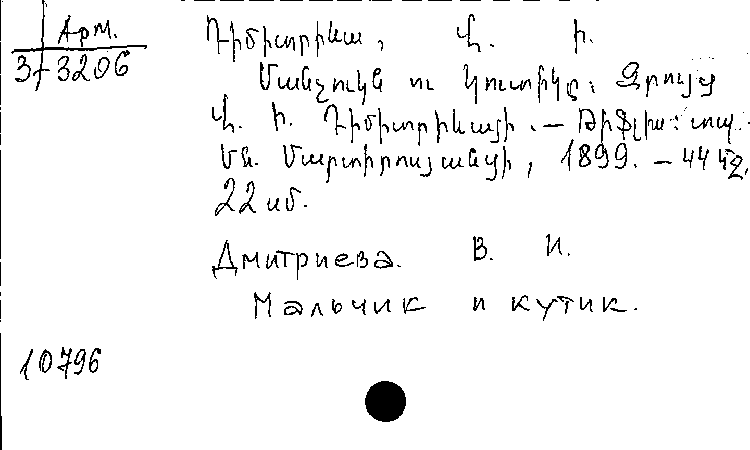 Арм.
3-3206
Դիմիտրիևա, Վ. Ի.
Մանչուկն ու կուտիկը: Զրույց
Վ. Ի. Դիմիտրիևայի. — Թիֆլիս: տպ.
Մն. Մարտիրոսյանցի, 1899. — 44 էջ,
22 սմ.
Дмитриева. В. И.
Мальчик и кутик.
10796